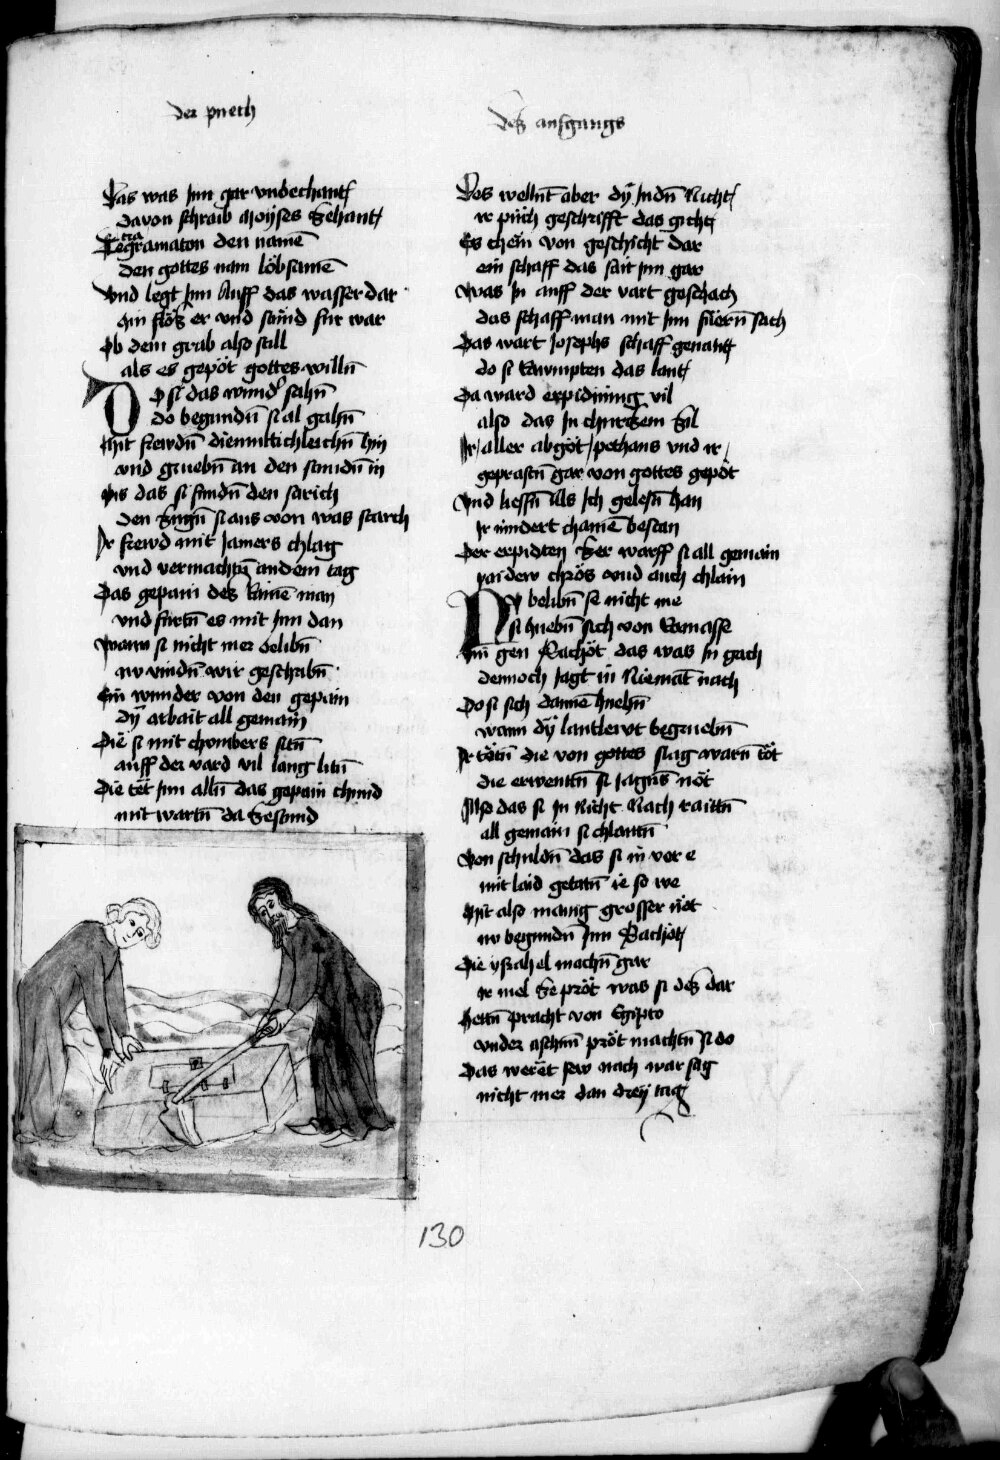 der puech
des ausgangs
Das was Inn gar vnbechant
davon schraib Moyses zehant
Tetragramaton den namē
den gottes nam löbsamē
vnd legt Inn Auff das wasser dar
hin flöz er vnd stuend fur war
Ob dem grab also still
als es gepöt gottes willñ
Do si das wund' sahñ
do begundñ si al gahñ
Mit frewdñ diemutichleichñ hin
vnd gruebñ an den stundñ in
Pis das si fundñ den sarich
den zugñ si aus von was starch
Ir frewd mit Jamers chlag
vnd vermachtñ an dem tag
Das gepain des raine man
vnd furtñ es mit Inn dan
Wann si nicht mer belibñ
nv vindñ wir geschribñ
Ein wunder von den gepain
dy arbait all gemain
Die si mit chombers sitñ
auff der vard vil lang litñ
Die tet Inn allñ das gepain chund
mit wartñ da gesund
Des wellnt aber dy Judñ Nicht
ir puch geschrifft das gicht
Es chem von geschicht dar
ein schaff das sait Inn gar
Was In auff der vart geschach
das schaff man mit Inn füern sach
Das wart Josephs schaff genant
do si Rawmpten das lant
Da ward erpidming vil
also das In churczem zil
Ir aller abgöt pethaus vnd ir
geprastñ gar von gottes gepöt
Vnd liessñ Als Ich gelesñ han
Ir nindert chainē bestan
Der erpidten zer warff si all gemain
paidew chrös vnd auch chlain
Do belibñ se nicht me
si huebñ sich von Ramasse
Hin gen Rachöt das was In gach
dennoch Jagt in Niemāt nach
Do si sich dannē huebñ
wann dy lantlewt begruebñ
Ir tötñ die von gottes slag warñ töt
die erwenttñ si Jagns nöt
Also das si In Nicht Nach raittñ
all gemain si chlautñ
Von schuldñ das si in vor e
mit laid getatñ ie so we
Mit also manig grosser nöt
nv begundñ Inn Rachöt
Die ysrahel machñ gar
Ir mel ze pröt was si des dar
Hettñ pracht von Egipto
vnder aschiñ pröt machtñ si do
Das weret sew nach war sag
nicht mer dan drey tag
130